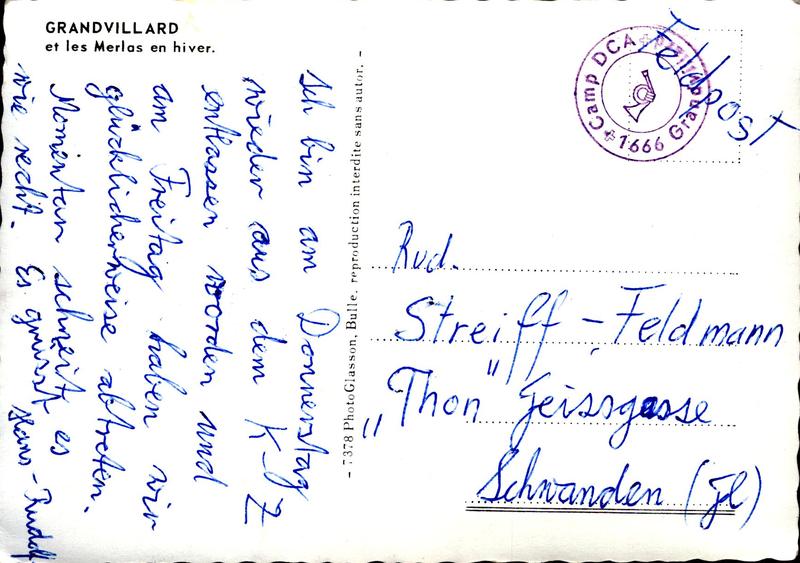 GRANDVILLARD
et les Merlas en hiver.
Ich bin am Donnerstag
wieder aus dem K-Z
entlassen worden und
am Freitag haben wir
glücklicherweise abtreten.
Momentan schneit es
wie recht. Es grüsst Hans-Rudolf
- 7378 Photo Glasson, Bulle, reproduction interdite sans autor. -
Camp DCA
1666 Grandvillard
Feldpost
Rud.
Streiff-Feldmann
"Thon" Geissgasse
Schwanden (Gl)